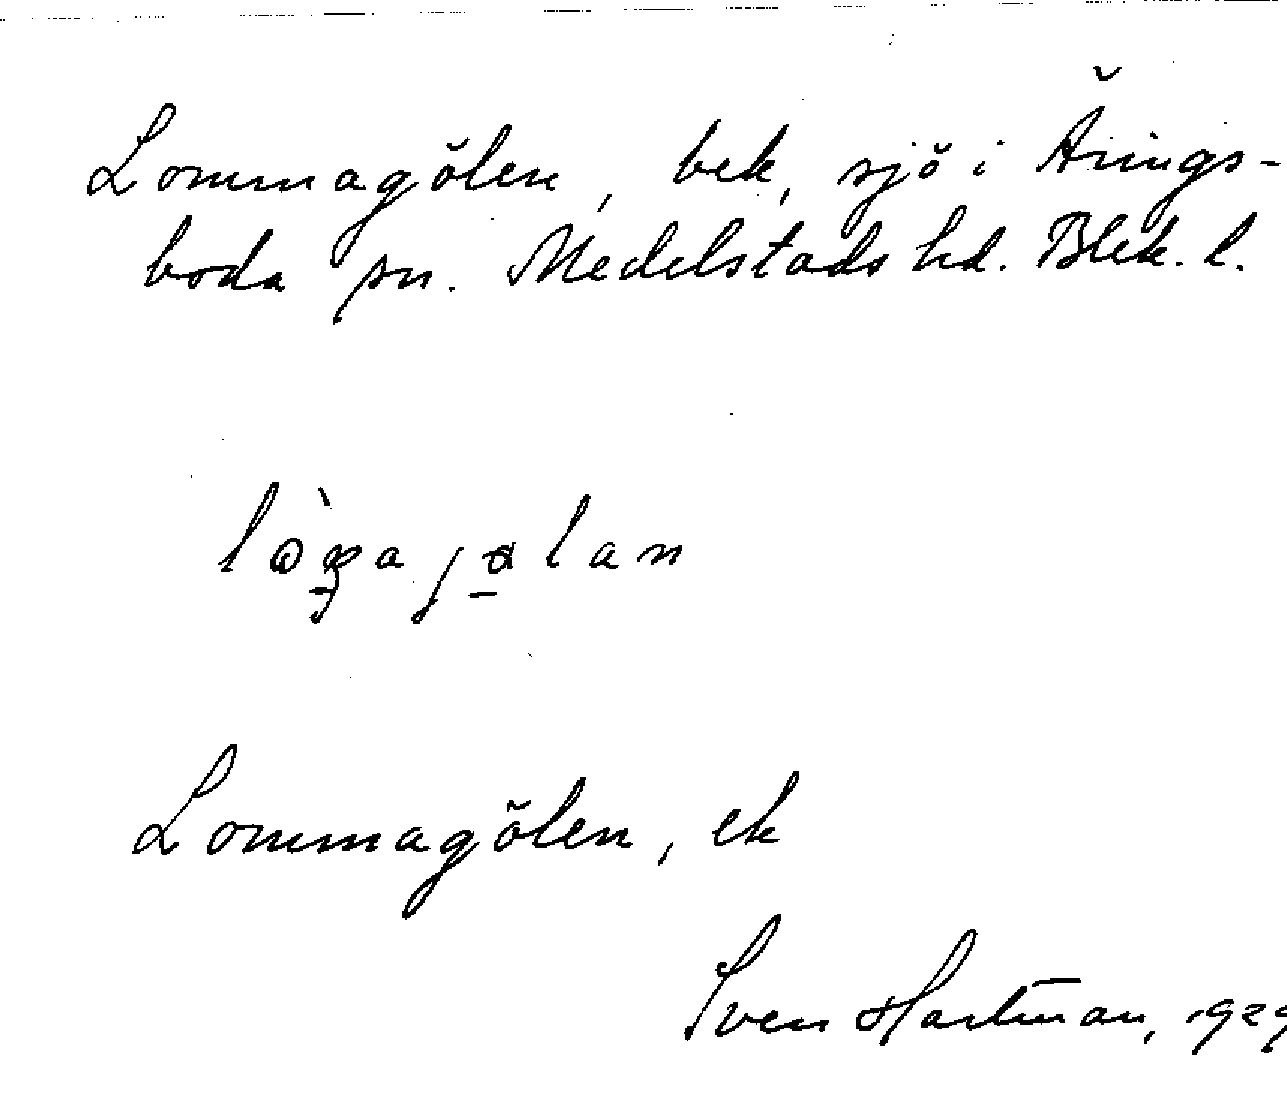 Lommagölen, bek, sjö i Årings-
boda sn. Medelstads hd. Blek. l.
Lommagölen, ek
Sven Hartman, 1929